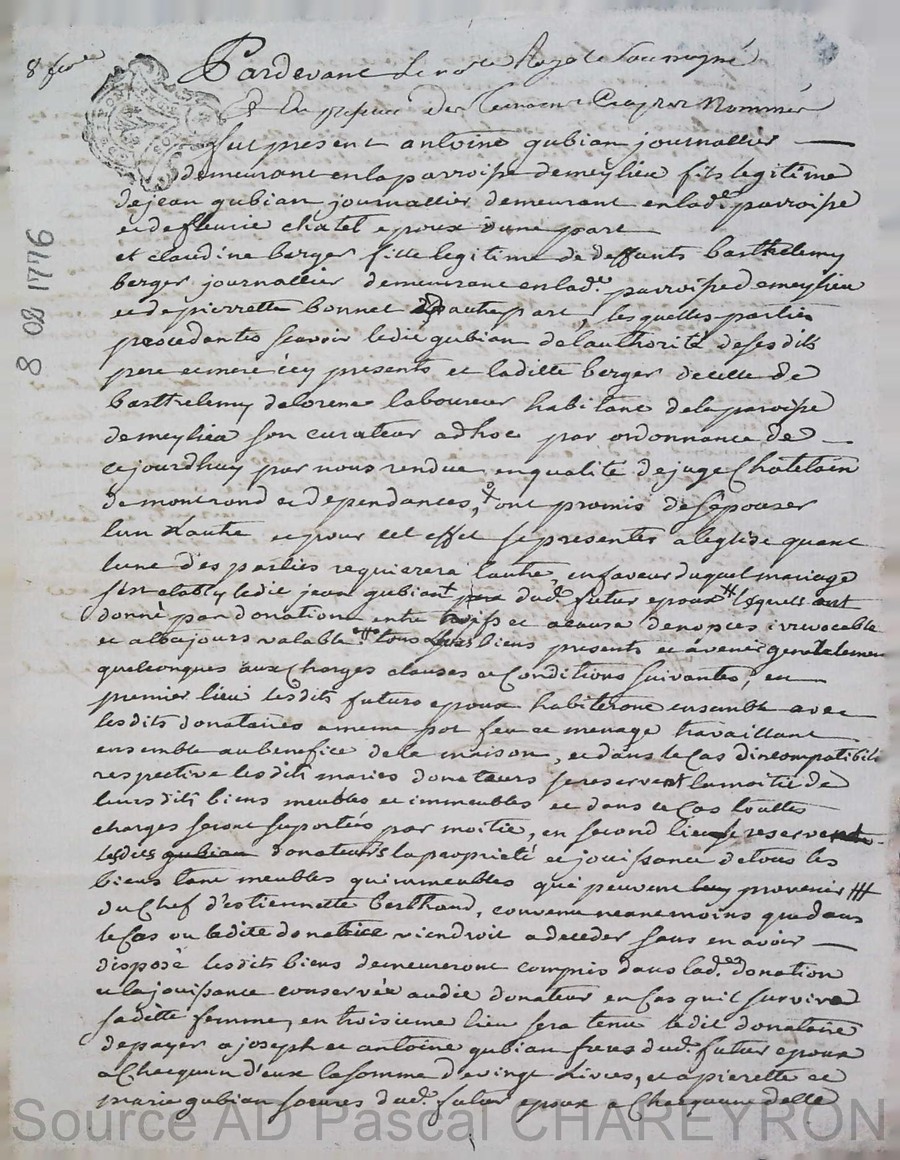 8 fevrier
8 02 1776
Pardevant le no.re Royal Soussigné
& En presence des Temoins Cy apres Nommés
fut present antoine gubian journallier
demeurant en la parroisse de meylieu fils legitime
de jean gubian journallier demeurant en lad.e parroisse
et de fleurie chatel epoux d'une part
et claudine berger fille legitime de deffunts barthelemy
berger journallier demeurant en lad.e parroisse de meylieu
et de pierrette bonnet d'autre part, lesquelles parties
procedantes scavoir ledit gubian de l'authorité de ses dits
pere et mere icy presents et laditte berger de celle de
barthelemy delorme laboureur habitant de la paroisse
de meylieu son curateur adhoc par ordonnance de
ce jourdhuy par nous rendue en qualité de juge Chatelain
de montrond et dependances, ont promis de sépouser
lun l'autre et pour cet effet se presenter a leglise quant
lune des parties requierera lautre, en faveur duquel mariage
sest etably ledit jean gubian du.d futur epoux lesquels ont
donné par donation entre vifs et a cause de noces irrevocable
et a toujours valable tous biens presents et avenir generalement
quelconques aux Charges clauses et Conditions suivantes, en
premier lieu lesdits futurs epoux habiteront ensemble avec
lesdits donataires a meme pot feu et menage travaillant
ensemble au benefice de la maison, et dans le Cas dincompatibili
respective lesdits maries donateurs se reservent la moitié de
leurs dits biens meubles et immeubles et dans ce Cas touttes
charges seront suportées par moitié, en second lieu se reservent
lesdits gubian donateurs la propriété et jouissance de tous les
biens tant meubles quimmeubles qui peuvent provenir
du Chef d'estiennette berthaud, convenu neanmoins que dans
le Cas ou ladite donatrice viendroit a deceder sans en avoir
disposé lesdits biens demeureront compris dans lad.e donation
et la jouissance conservée audit donateur en Cas quil survive
saditte femme, en troisieme lieu sera tenu ledit donataire
de payer a joseph et antoine gubian freres du.d futur epoux
a Chacquun d'eux la somme de vingt Livres, et a pierette et
marie gubian soeures dud. futur epoux a Chacquune delle
Source AD Pascal CHAREYRON